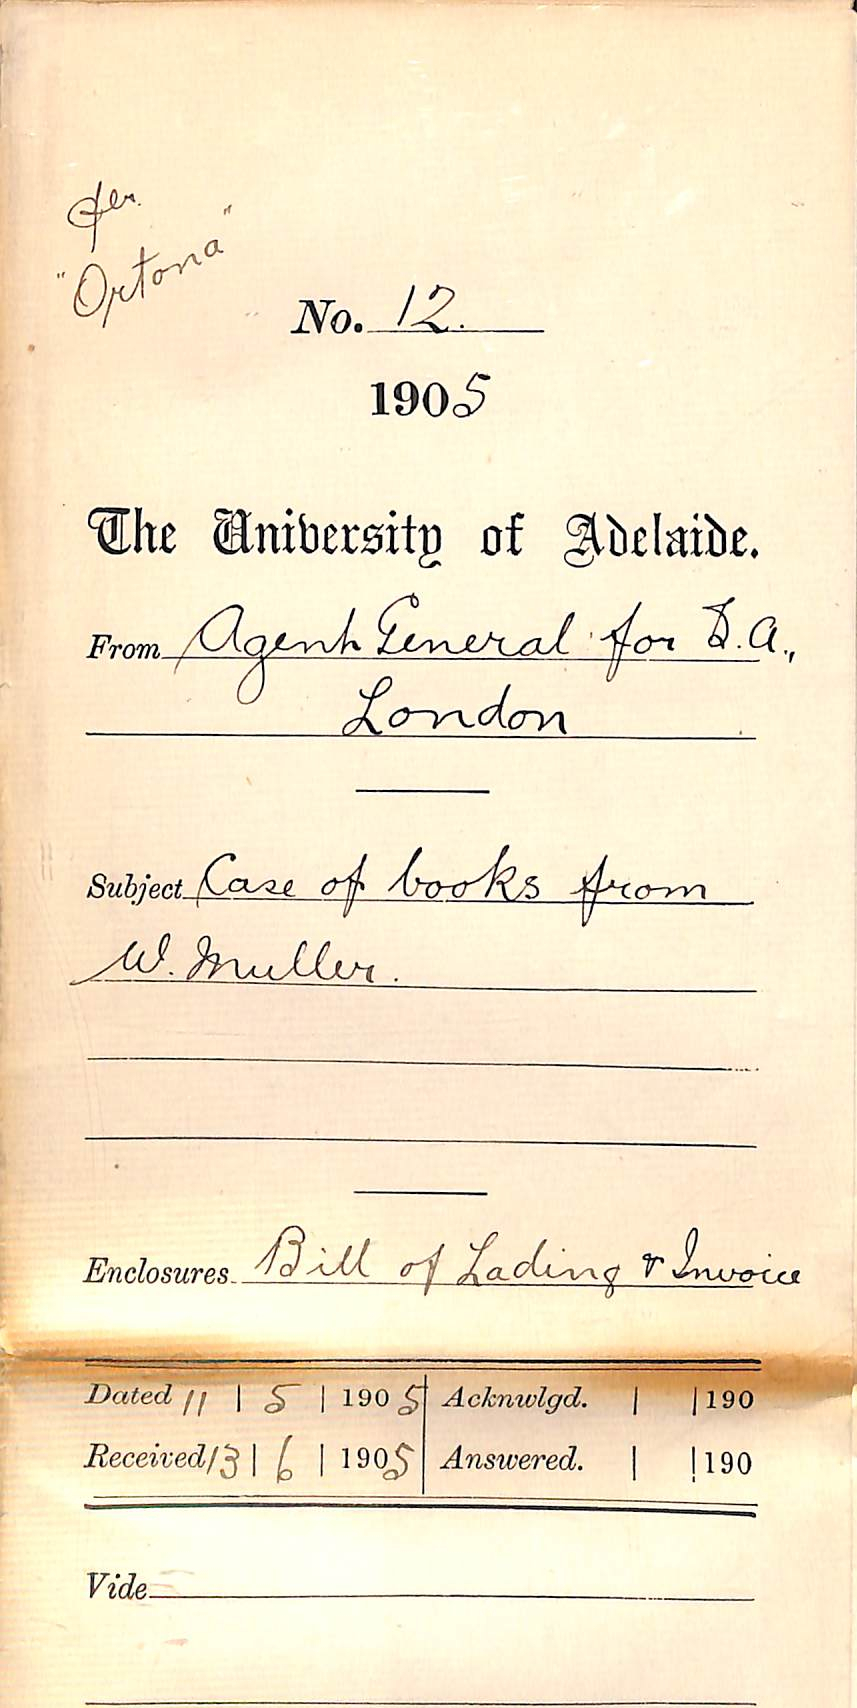 per
"Ortona"
No. 12.
1905
The University of Adelaide.
From Agent General for S.A.,
London
Subject Case of books from
W. Muller.
Enclosures Bill of Lading & Invoice
Dated 11 | 5 | 1905 Acknwlgd. | | 190
Received 13 | 6 | 1905 Answered. | | 190
Vide